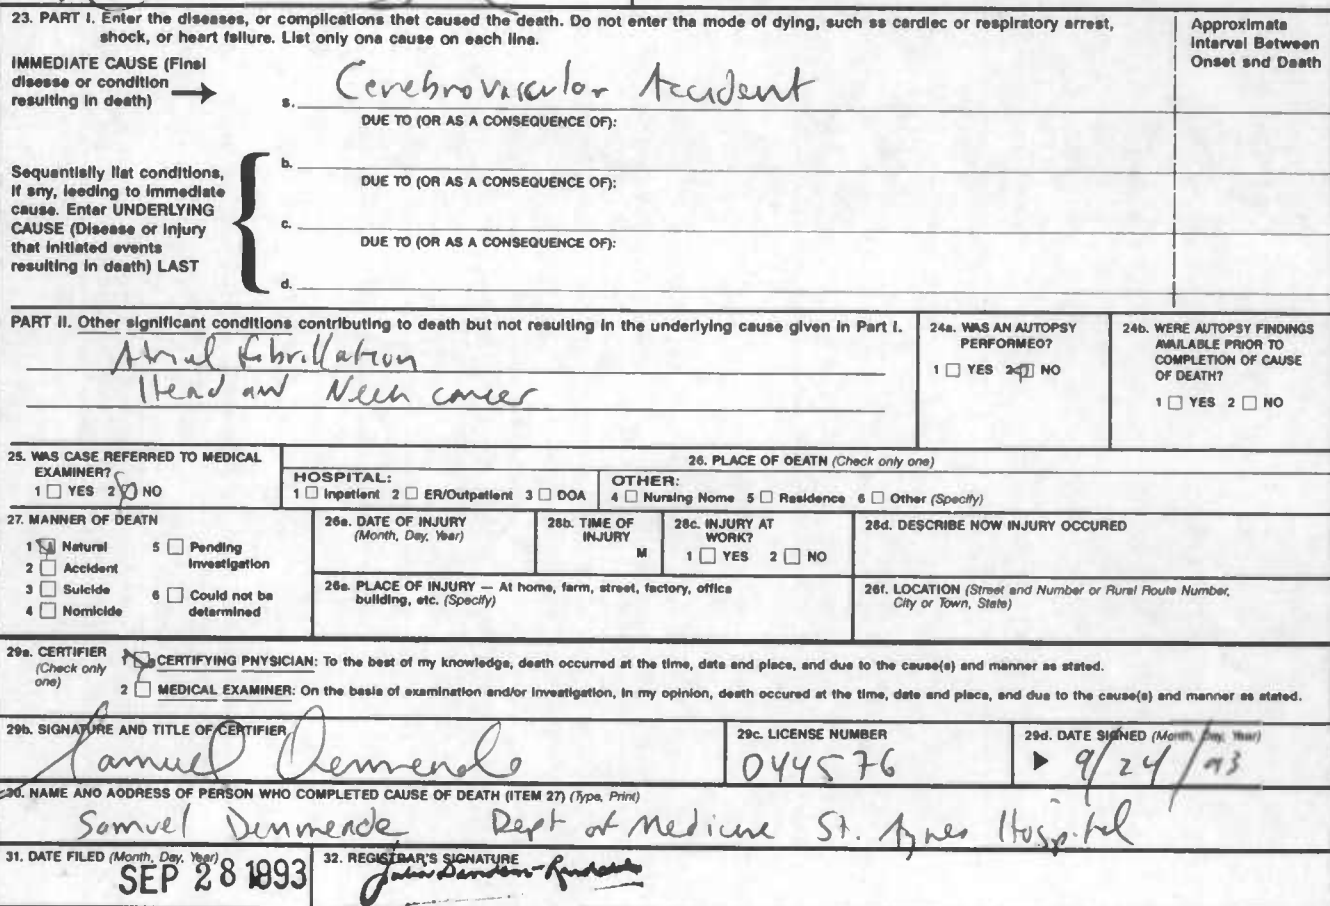 23. PART I. Enter the diseases, or complications that caused the death. Do not enter the mode of dying, such as cardiac or respiratory arrest,
shock, or heart failure. List only one cause on each line.
Approximate
Interval Between
Onset and Death
IMMEDIATE CAUSE (Final
disease or condition
resulting in death)
a. Cerebrovascular Accident
DUE TO (OR AS A CONSEQUENCE OF):
Sequentially list conditions,
if any, leading to immediate
cause. Enter UNDERLYING
CAUSE (Disease or injury
that initiated events
resulting in death) LAST
b.
DUE TO (OR AS A CONSEQUENCE OF):
c.
DUE TO (OR AS A CONSEQUENCE OF):
d.
PART II. Other significant conditions contributing to death but not resulting in the underlying cause given in Part I.
Atrial Fibrillation
Head and Neck cancer
24a. WAS AN AUTOPSY
PERFORMED?
1 YES 2 NO
24b. WERE AUTOPSY FINDINGS
AVAILABLE PRIOR TO
COMPLETION OF CAUSE
OF DEATH?
1 YES 2 NO
25. WAS CASE REFERRED TO MEDICAL
EXAMINER?
1 YES 2 NO
26. PLACE OF DEATH (Check only one)
HOSPITAL:
1 Inpatient 2 ER/Outpatient 3 DOA
OTHER:
4 Nursing Home 5 Residence 6 Other (Specify)
27. MANNER OF DEATH
1 Natural 5 Pending
Investigation
2 Accident
3 Suicide 6 Could not be
determined
4 Homicide
28a. DATE OF INJURY
(Month, Day, Year)
28b. TIME OF
INJURY
M
28c. INJURY AT
WORK?
1 YES 2 NO
28d. DESCRIBE HOW INJURY OCCURED
28e. PLACE OF INJURY — At home, farm, street, factory, office
building, etc. (Specify)
28f. LOCATION (Street and Number or Rural Route Number,
City or Town, State)
29a. CERTIFIER
(Check only
one)
1 CERTIFYING PHYSICIAN: To the best of my knowledge, death occurred at the time, date and place, and due to the cause(s) and manner as stated.
2 MEDICAL EXAMINER: On the basis of examination and/or investigation, in my opinion, death occured at the time, date and place, and due to the cause(s) and manner as stated.
29b. SIGNATURE AND TITLE OF CERTIFIER
Samuel
29c. LICENSE NUMBER
044576
29d. DATE SIGNED (Month, Day, Year)
9/24/93
30. NAME AND ADDRESS OF PERSON WHO COMPLETED CAUSE OF DEATH (ITEM 27) (Type, Print)
Samuel Denmeade Dept of Medicine St. Agnes Hospital
31. DATE FILED (Month, Day, Year)
SEP 28 1993
32. REGISTRAR'S SIGNATURE